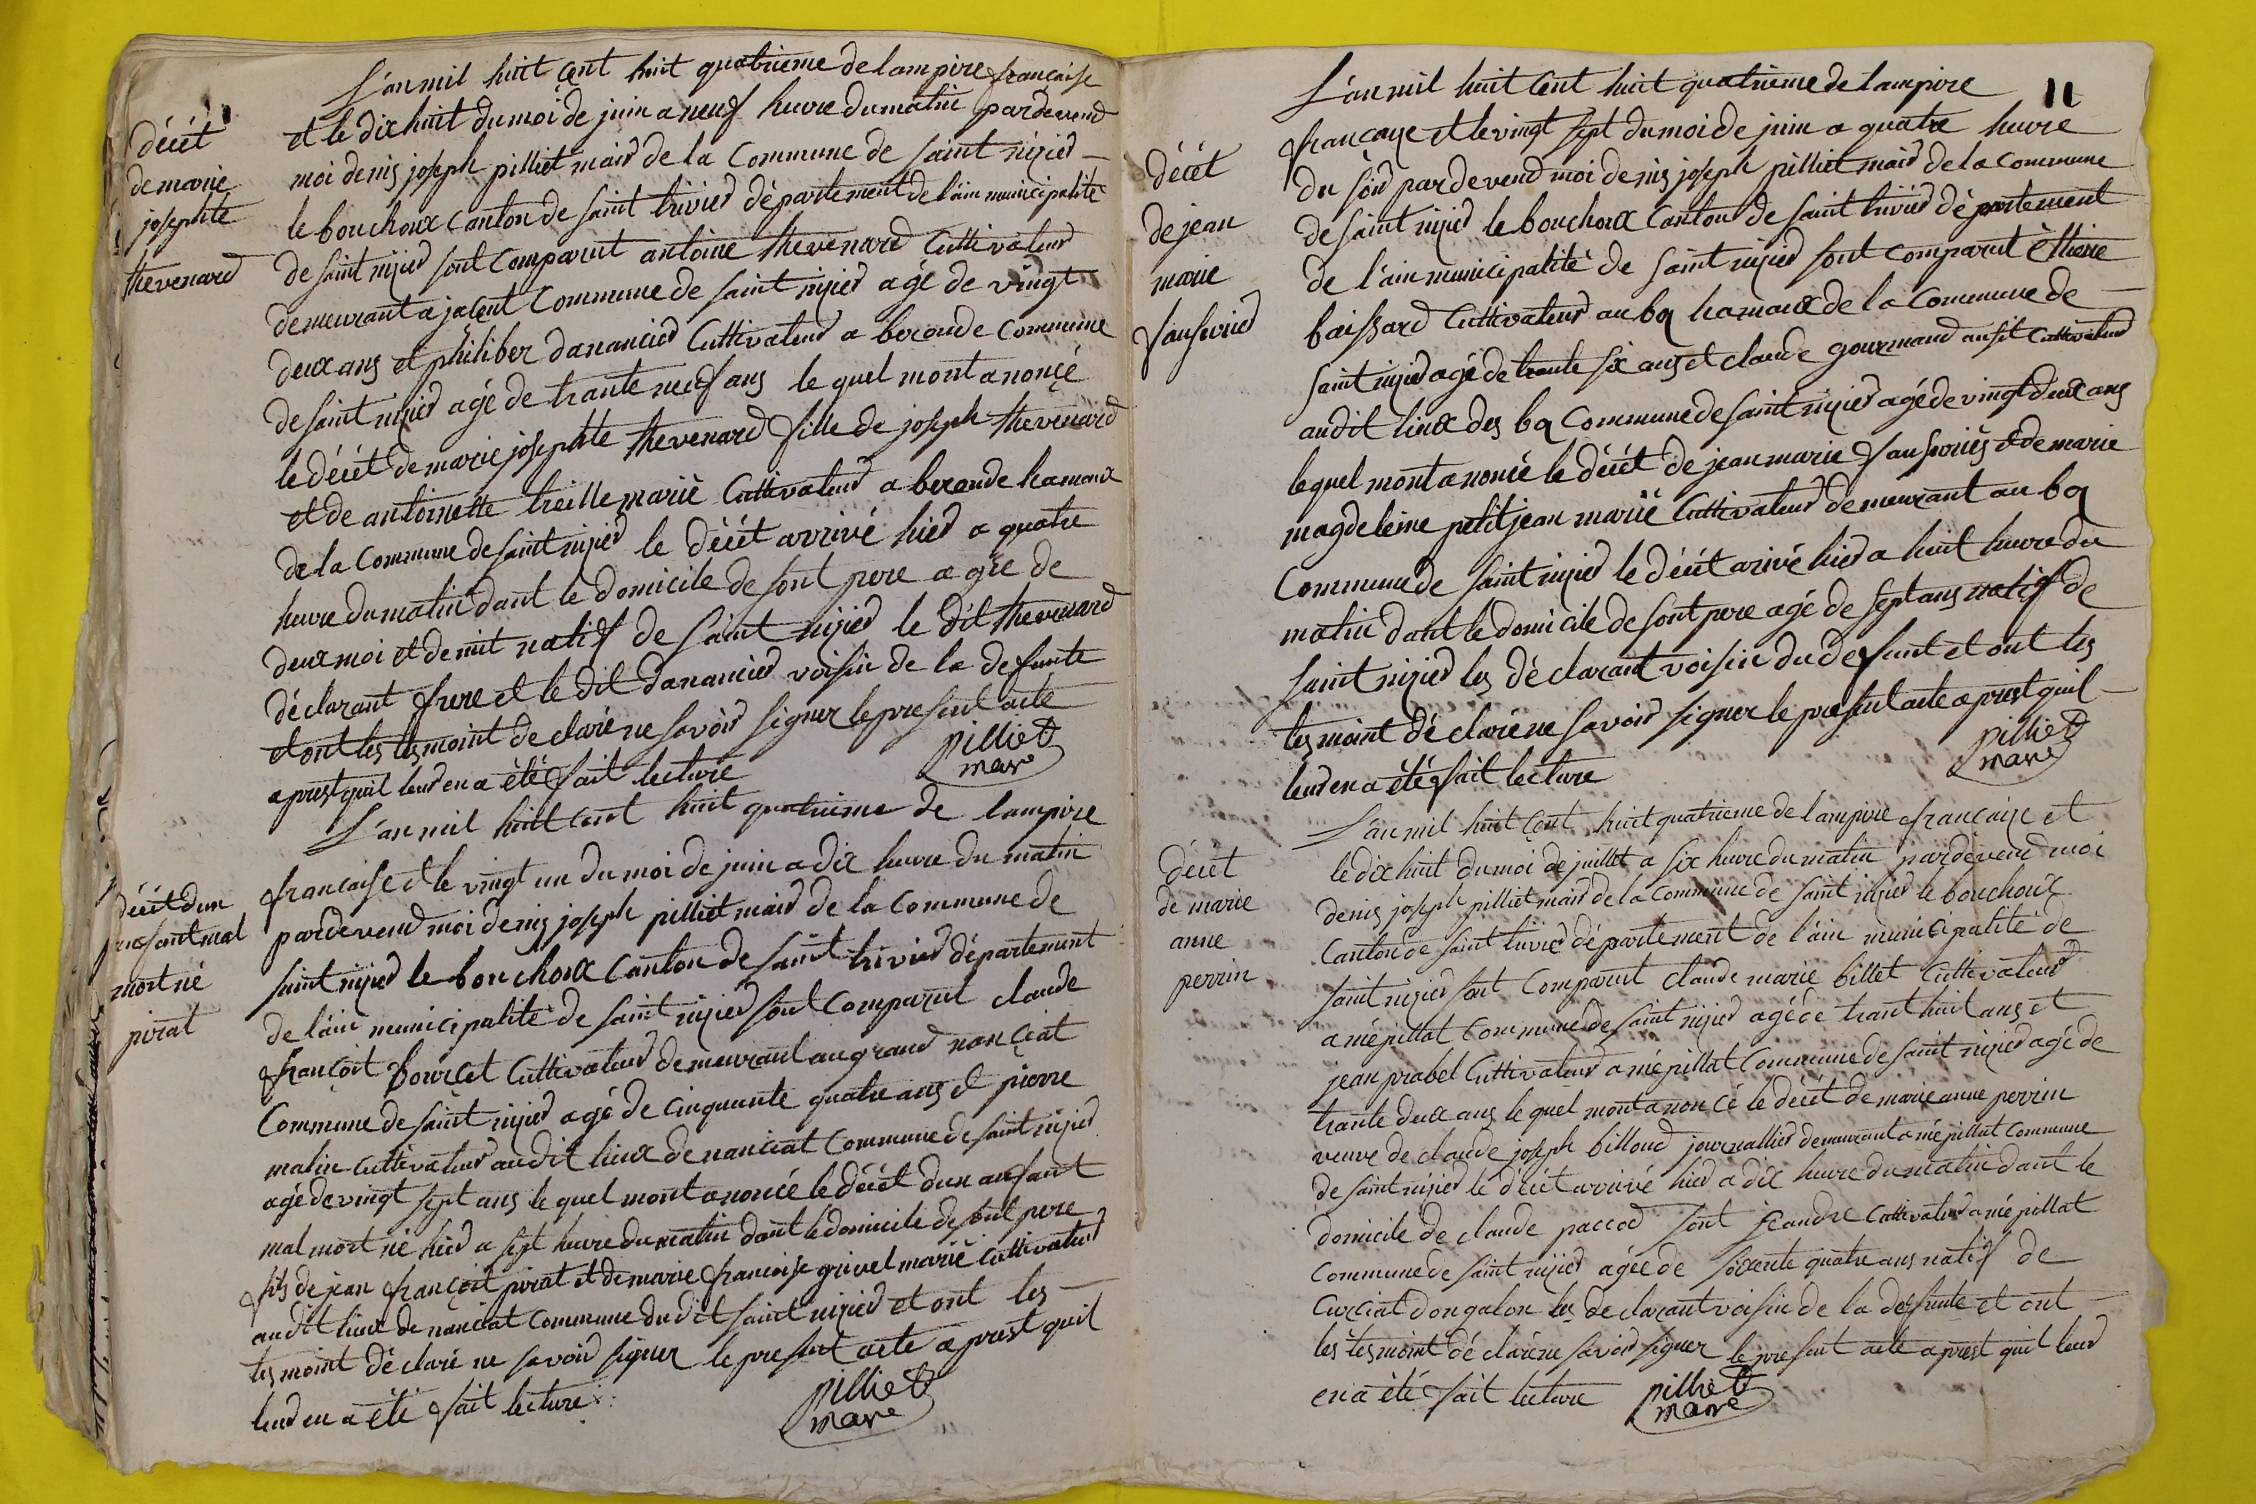 L'an mil huit cent huit quatrieme de lampire française
et le dix huit du moi de juin a neuf heure du matin pardevend
moi denis joseph pilliet maid de la Commune de saint nijied
le bouchoux canton de saint trivied département de l'ain municipalité
de saint nijied sont Comparut antoine thevenard Cultivateud
demeurant a jacent Commune de saint nijied agé de vingt
deux ans et philiber danancied Cultivateud a beronde commune
de saint nijied agé de trante neuf ans le quel mont anonçé
le décét de marie josephte thevenard fille de joseph thevenard
et de antoinette treille marié Cultivateud a beronde hamaux
de la Commune de saint nijied le décét arrivé hied a quatre
heure du matin dant le domicile de sont pere agée de
deux moi et demit natif de saint nijied le dit thevenard
déclarant frere et le dit danancied voisin de la defunte
et ont les tesmoint declaré ne savoid signer le present acte
a prest quil leud en a été fait lecture
pilliet
mare
décét
de marie
josephte
thevenard
L'an mil huit cent huit quatrieme de lampire
française et le vingt un du moi de juin a dix heure du matin
pardevend moi denis joseph pilliet maid de la Commune de
saint nijied le bouchoux Canton de saint trivied département
de l'ain municipalité de saint nijied sont Comparut claude
françoit bourcet Cultivateud demeurant au grand nanciat
Commune de saint nijied agé de cinquante quatre ans et pierre
matin Cultivateud audit lieux de nanciat Commune de saint nijied
agé de vingt sept ans le quel mont anoncé le décét dun anfant
mal mort né hied a sept heure du matin dant le domicile de sont pere
fils de jean françoit pirat et de marie françoise grivel marié Cultivateud
audit lieux de nanciat Commune du dit saint nijied et ont les
tesmoint déclaré ne savoid signer le present acte a prest quil
leud en a été fait lecture
pilliet
mare
décét dun
anfant mal
mort né
pirat
11
L'an mil huit cent huit quatrieme de lampire
française et le vingt sept du moi de juin a quatre heure
du soid pardevend moi denis joseph pilliet maid de la Commune
de saint nijied le bouchoux Canton de saint trivied département
de l'ain municipalité de saint nijied sont comparut ètiene
baissard Cultivateud au bq hamaux de la Commune de
saint nijied agé de trante six ans et claude gourmand ausit Cultivateud
audit lieux des bq Commune de saint nijied agé de vingt deux ans
lequel mont anoncé le décét de jean marie et de marie
magdeleine petitjean marié Cultivateud demeurant au bq
Commune de saint nijied le décét arivé hied a huit heure du
matin dant le domicile de sont pere agé de sept ans natif de
saint nijied les déclarant voisin du defunt et ont les
tesmoint déclaré ne savoid signer le present acte a prest quil
leud en a été fait lecture
pilliet
mare
décét
de jean
marie
L'an mil huit cent huit quatrieme de lampire française et
le dix huit du moi de juillet a six heure du matin pardevend moi
denis joseph pilliet maid de la Commune de saint nijied le bouchoux
Canton de saint trivied département de l'ain municipalité de
saint nijied sont Comparut claude marie billet Cultivateud
a mépillat Commune de saint nijied agé de trant huit ans et
jean prabel Cultivateud a mépillat Commune de saint nijied agé de
trante deux ans le quel mont anoncé le décét de marie anne perrin
veuve de claude joseph billoud journallied demeurant a mépillat Commune
de saint nijied le décét arrivé hied a dix heure du matin dant le
domicile de claude paccod sont jeandre Cultivateud a mépillat
Commune de saint nijied agée de soixente quatre ans natif de
Curciat dongalon les declarant voisin de la defunte et ont
les tesmoint déclaré ne savoid signer le present acte a prest quil leud
en a été fait lecture
pilliet
mare
décét
de marie
anne
perrin